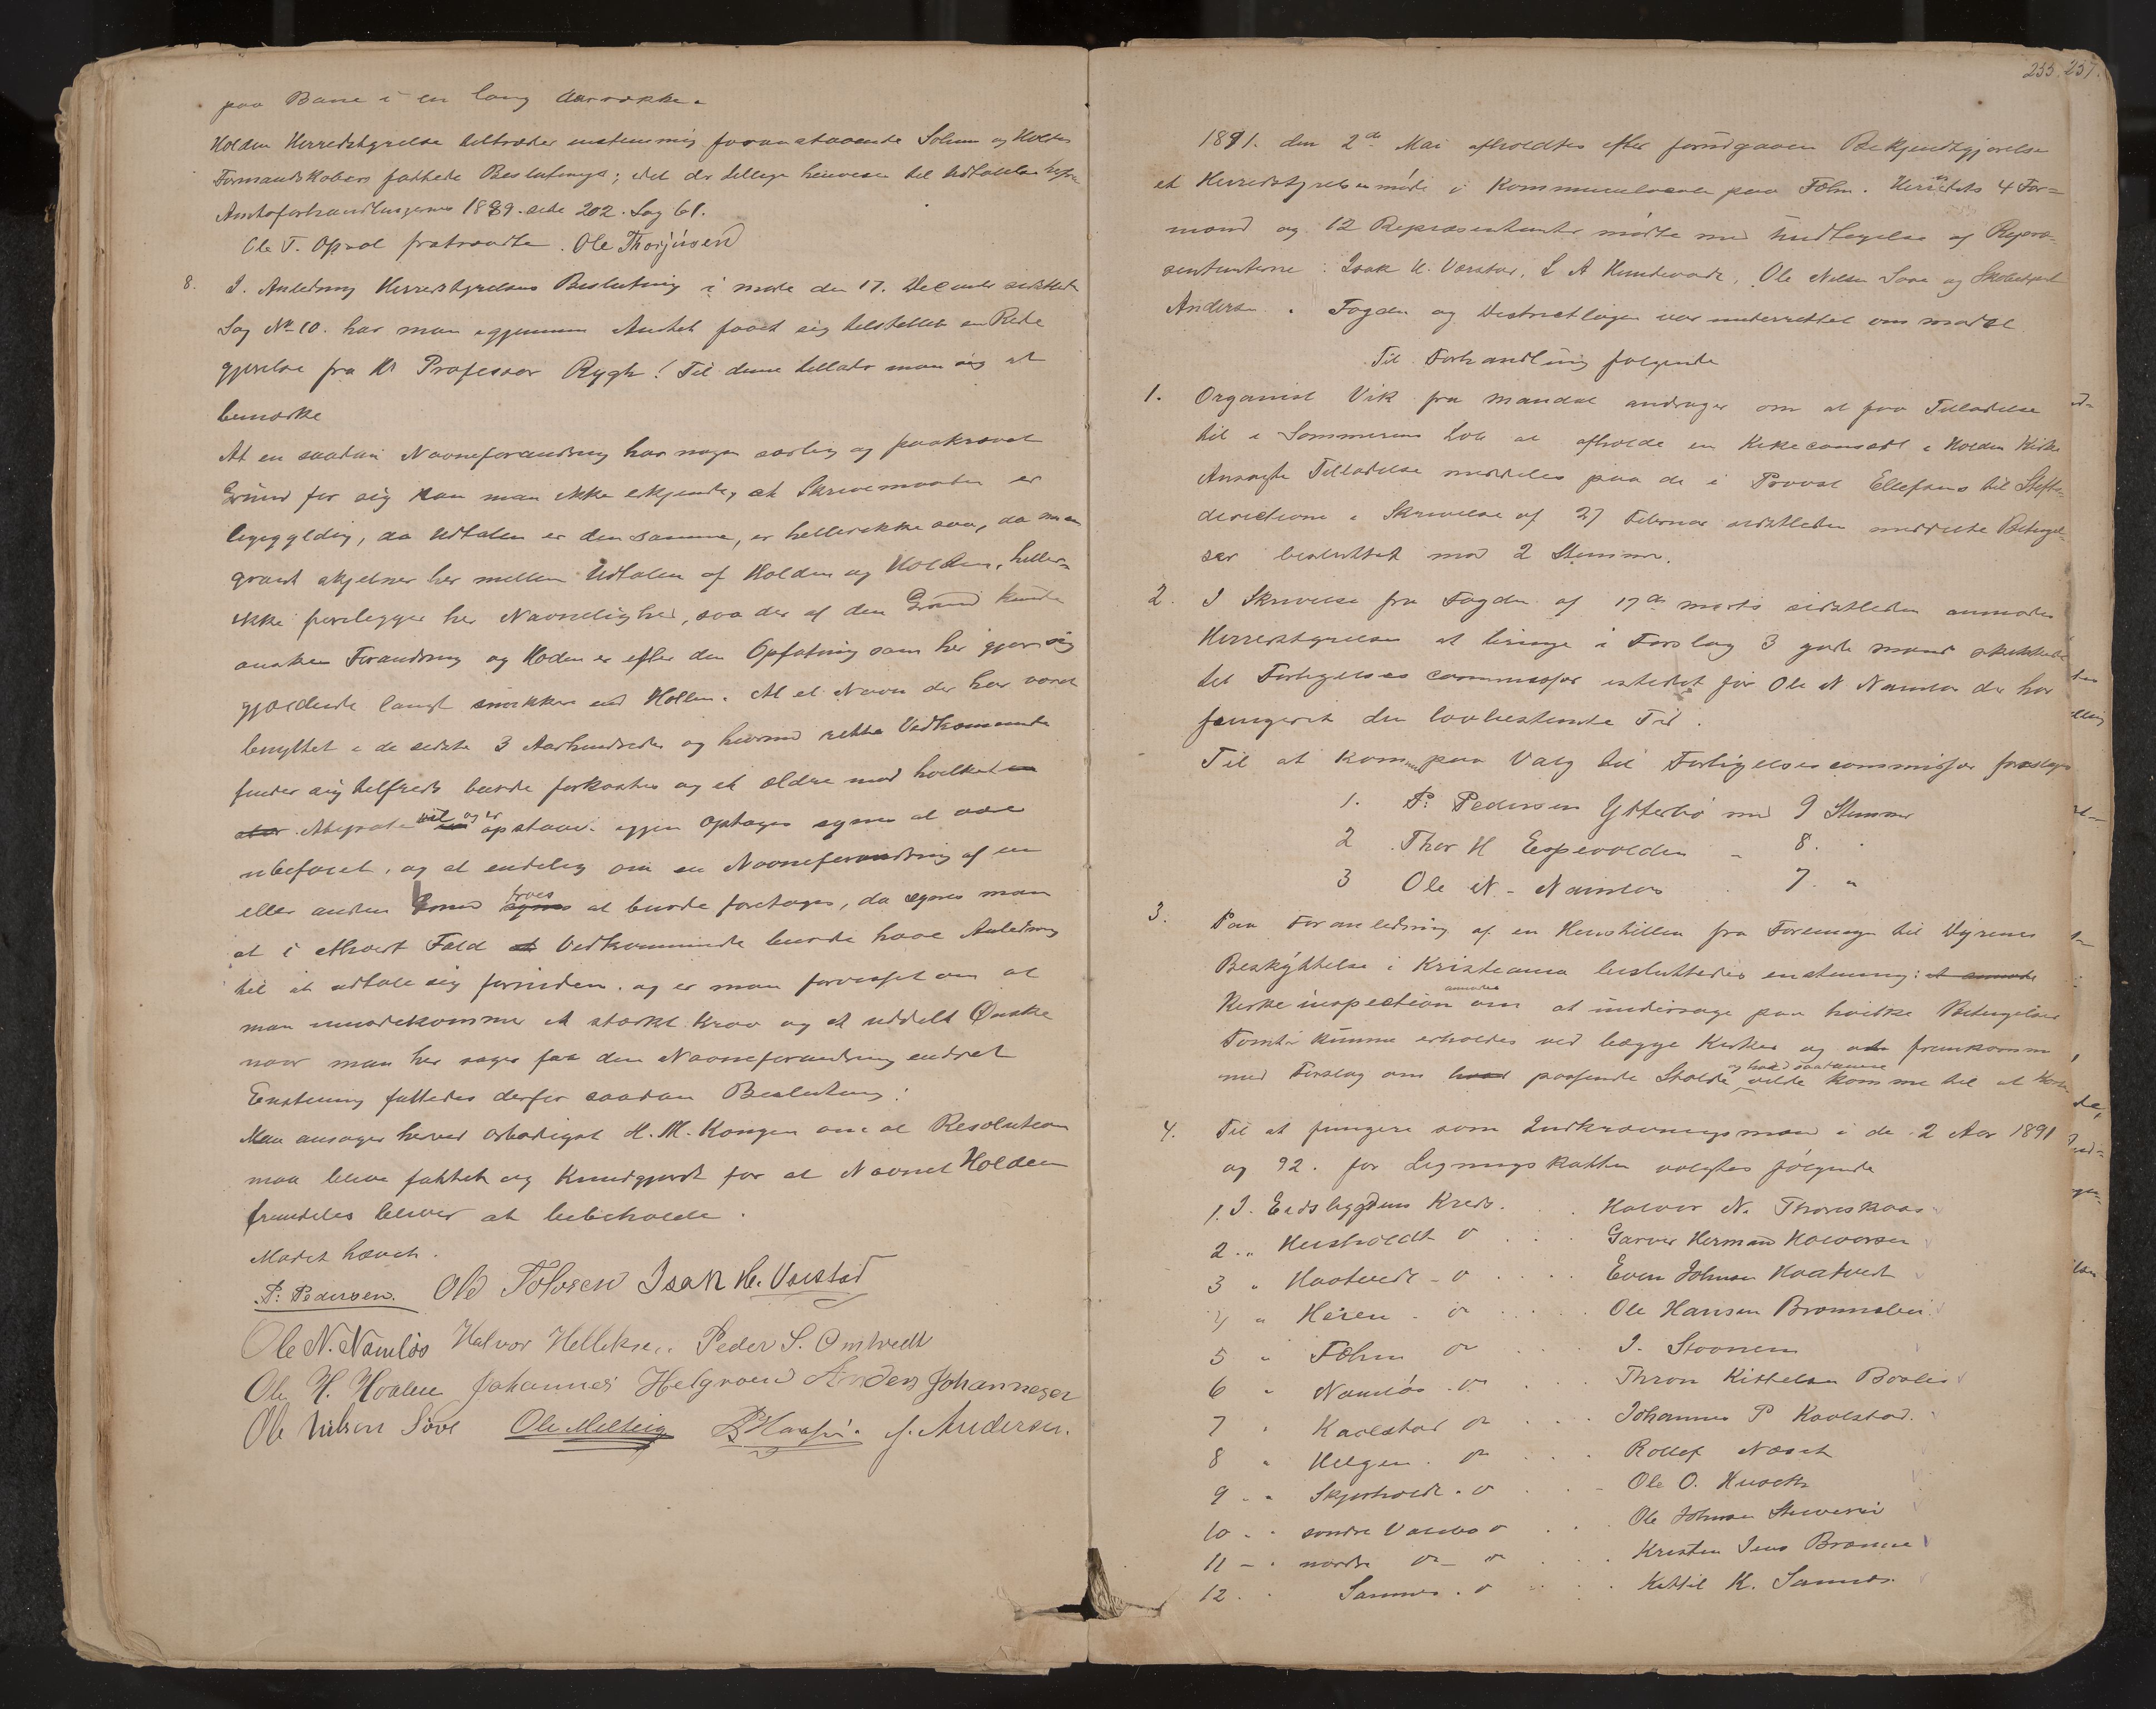 paa Bane i en lang Aarrække.
Holden Herredstyrelse tiltræder enstemmig foranstaaende Solum og Holden
Formandskabers fattede Beslutninger; idet der tillige henvises til Udtalelse
Amtsforhandlingerne 1889. side 202. Sag 61.
Ole T. fratraadte. Ole Thorjusen
8. I Anledning Herredstyrelsens Beslutning i møde den 17. December sidstleden
Sag No 10. har man igjennem Amtet faaet sig tilstillet en Rede
gjørelse fra Hr Professor Rygh! Til denne tillader man sig at
bemærke
At en saadan Navneforandring har nogen særlig og paakrævet
Grund for sig kan man ikke erkjende, at Skrivemaaden er
ligegyldig, da Udtalen er den samme, er heller ikke saa, da man
grant skjelner her mellem Udtalen af Holden og Hollen, heller
ikke foreligger her Navnelighed, saa der af den Grund kunde
ønskes Forandring og Holden er efter den Opfatning som her gjør sig
gjældende langt smukkere end Hollen. At et Navn der har været
benyttet i de sidste 3 Aarhundreder og hvormed rette Vedkommende
finder sig tilfreds burde forkastes og et ældre mod hvilket en
stor Misnøie vil og er opstaae. igjen optages synes at være
ubeføiet, og at endelig om en Navneforandring af en
eller anden Grund troes at burde foretages, da synes man
at i ethvert Fald at Vedkommende burde have Anledning
til at udtale sig forinden. og er man forvisset om at
man imødekommer et stærkt Krav og et uddelt Ønske
naar man her søger faa den Navneforandring endret
Enstemmig fattedes derfor saadan Beslutning:
Man ansøger herved ærbødigst H. M. Kongen om at Resolution
maa blive fattet og Kundgjordt for at Navnet Holden
fremdeles bliver at beibeholde.
Mødet hævet.
P. Pedersen. Ole Tolvsen Isak H. Vaerstad
Ole N. Namløs Halvor Helleksen. Peder S. Omtvedt
Ole H. Hoalen Johannes Helgraen Anders Johannesen
Ole Nilsen Sove Ole Melteig J. Andersen.
255. 257.
1891. den 2den Mai afholdtes efter forudgaaen Bekjendtgjørelse
et Herredstyrelsemøde i Kommunelocale paa Fæhn. Herredets 4 For=
mænd og 12 Repræsentanter mødte med Undtagelse af Repræ-
sentanterne: Isak H. Værstad, L A Hundevadt, Ole Nilsen Sove og
Andersen. Fogden og Districtlægen var underrettet om mødet.
Til Forhandling følgende
1. Organist Vik fra Mandal andrager om at faa Tilladelse
til i Sommerens Løb at afholde en Kirkeconsert i Holden Kirke
Ansøgte Tilladelse meddeles paa de i Provst Ellefsens til Stifts=
directionen i Skrivelse af 27 Februar sidstleden meddelte Betingel=
ser besluttet mod 2 Stemmer.
2. I Skrivelse fra Fogden af 17de marts sidstleden anmodes
Herredstyrelsen at bringe i Forslag 3 gode mænd skikkede
til Forligelsescommissær istedet for Ole N Namløs der har
fungeret den lovbestemte Tid.
Til at komme paa Valg til Forligelsescommissær foreslages
1. P. Pedersen Ytterbø med 9 Stemmer
2 Thor H Espevolden - 8. "
3 Ole N. Namløs . 7. "
3. Paa Foranledning af en Henstillen fra Foreningen til Dyrenes
Beskyttelse i Kristiania besluttedes enstemmig: at anmode
Kirkeinspectionen anmodes om at undersøge paa hvilke Betingelser
Tomter kunne erholdes ved begge Kirker og fremkomme
med Forslag om hvad passende Stalde og hvad saadanne vilde komme til at koste
4. Til at fungere som Indkrævningsmænd i de 2 Aar 1891
og 92. for Ligningsskatten valgtes følgende
1. I. Eidsbygdens Kreds. . . Halvor N. Thoreskaas
2 " Husholdt do . . . Garver Herman Halvorsen
3 " Haatvedt do . . . Even Johnsen Haatvedt
4 " Heien do . . . Ole Hansen Brønnebei
5 " Fæhn do . . . I. Stoonen
6 " Namløs do . . . Thron Kittelsen Bøvlie
7 " Kaalstad do . . . Johannes P Kaalstad.
8 " Helgen do . . . Rollef Næset
9 " Skjørholdt do . . . Ole O. Hvæth
10 " søndre do . . . Ole Johnsen
11 " nordre do do . . . Kristen Jens Brønne
12 " Sannes do . . . Kittil K. Sannes.